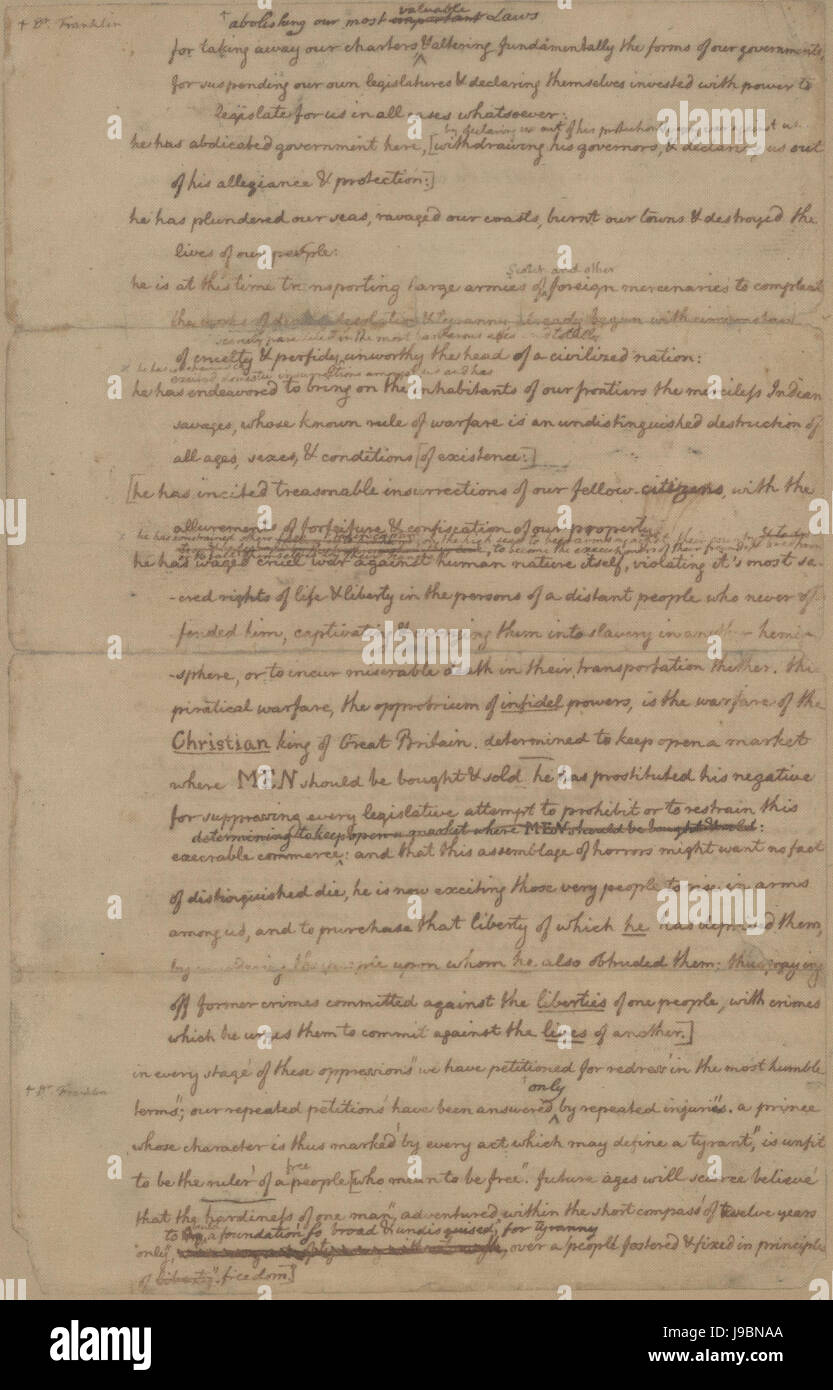 + Dr. Franklin
abolishing our most important valuable Laws
for taking away our charters & altering fundamentally the forms of our governments,
for suspending our own legislatures & declaring themselves invested with power to
legislate for us in all cases whatsoever:
by declaring us out of his protection
he has abdicated government here, [withdrawing his governors, & declaring us out
of his allegiance & protection:]
he has plundered our seas, ravaged our coasts, burnt our towns & destroyed the
lives of our people:
Scotch and other
he is at this time transporting large armies of foreign mercenaries to compleat
the works of death desolation & tyranny already begun with circumstances
scarcely paralleled in the most barbarous ages and totally
of cruelty & perfidy unworthy the head of a civilized nation:
excited domestic insurrections amongst us and has
he has endeavored to bring on the inhabitants of our frontiers the merciless Indian
savages, whose known rule of warfare is an undistinguished destruction of
all ages, sexes, & conditions [of existence:]
[he has incited treasonable insurrections of our fellow citizens, with the
allurements of forfeiture & confiscation of our property
he has constrained on the high seas to bear arms against their country
to become the executioners of their friends
he has waged cruel war against human nature itself, violating it's most sa-
-cred rights of life & liberty in the persons of a distant people who never of
fended him, captivating & carrying them into slavery in another hemi-
-sphere, or to incur miserable death in their transportation thither. this
piratical warfare, the opprobrium of infidel powers, is the warfare of the
Christian king of Great Britain. determined to keep open a market
where MEN should be bought & sold he has prostituted his negative
for suppressing every legislative attempt to prohibit or to restrain this
determining to keep open a market where MEN should be bought & sold:
execrable commerce: and that this assemblage of horrors might want no fact
of distinguished die, he is now exciting those very people to rise in arms
among us, and to purchase that liberty of which he has deprived them,
by murdering the people upon whom he also obtruded them: thus paying
off former crimes committed against the liberties of one people, with crimes
which he urges them to commit against the lives of another.]
in every stage of these oppressions we have petitioned for redress in the most humble
+ Dr. Franklin
only
terms; our repeated petitions have been answered by repeated injuries. a prince
whose character is thus marked by every act which may define a tyrant, is unfit
free
to be the ruler of a people [who mean to be free. future ages will scarce believe
that the hardiness of one man, adventured within the short compass of twelve years
to a foundation so broad & undisguised, for tyranny
only, over a people fostered & fixed in principles
of liberty. freedom.]
alamy
Image ID: J9BNAA
www.alamy.com